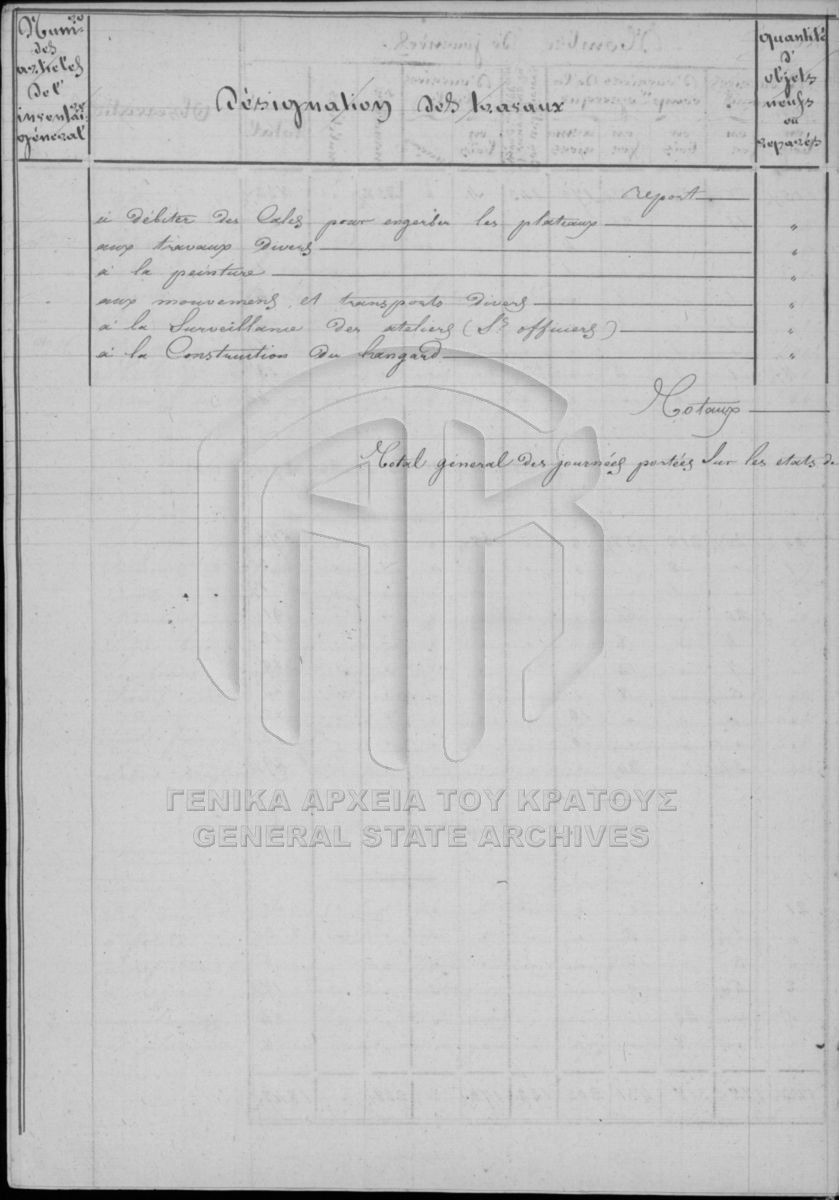 Num.ros
des
articles
de l'
inventai.re
général
Désignation des travaux
quantité
d'
objets
neufs
ou
réparés
report
à débiter des Cales pour engerber les plateaux "
aux travaux divers "
à la peinture "
aux mouvemens et transports divers "
à la Surveillance des ateliers (Ss officiers) "
à la Construction du hangard "
Totaux
Total général des journées portées Sur les états de
ΓΕΝΙΚΑ ΑΡΧΕΙΑ ΤΟΥ ΚΡΑΤΟΥΣ
GENERAL STATE ARCHIVES